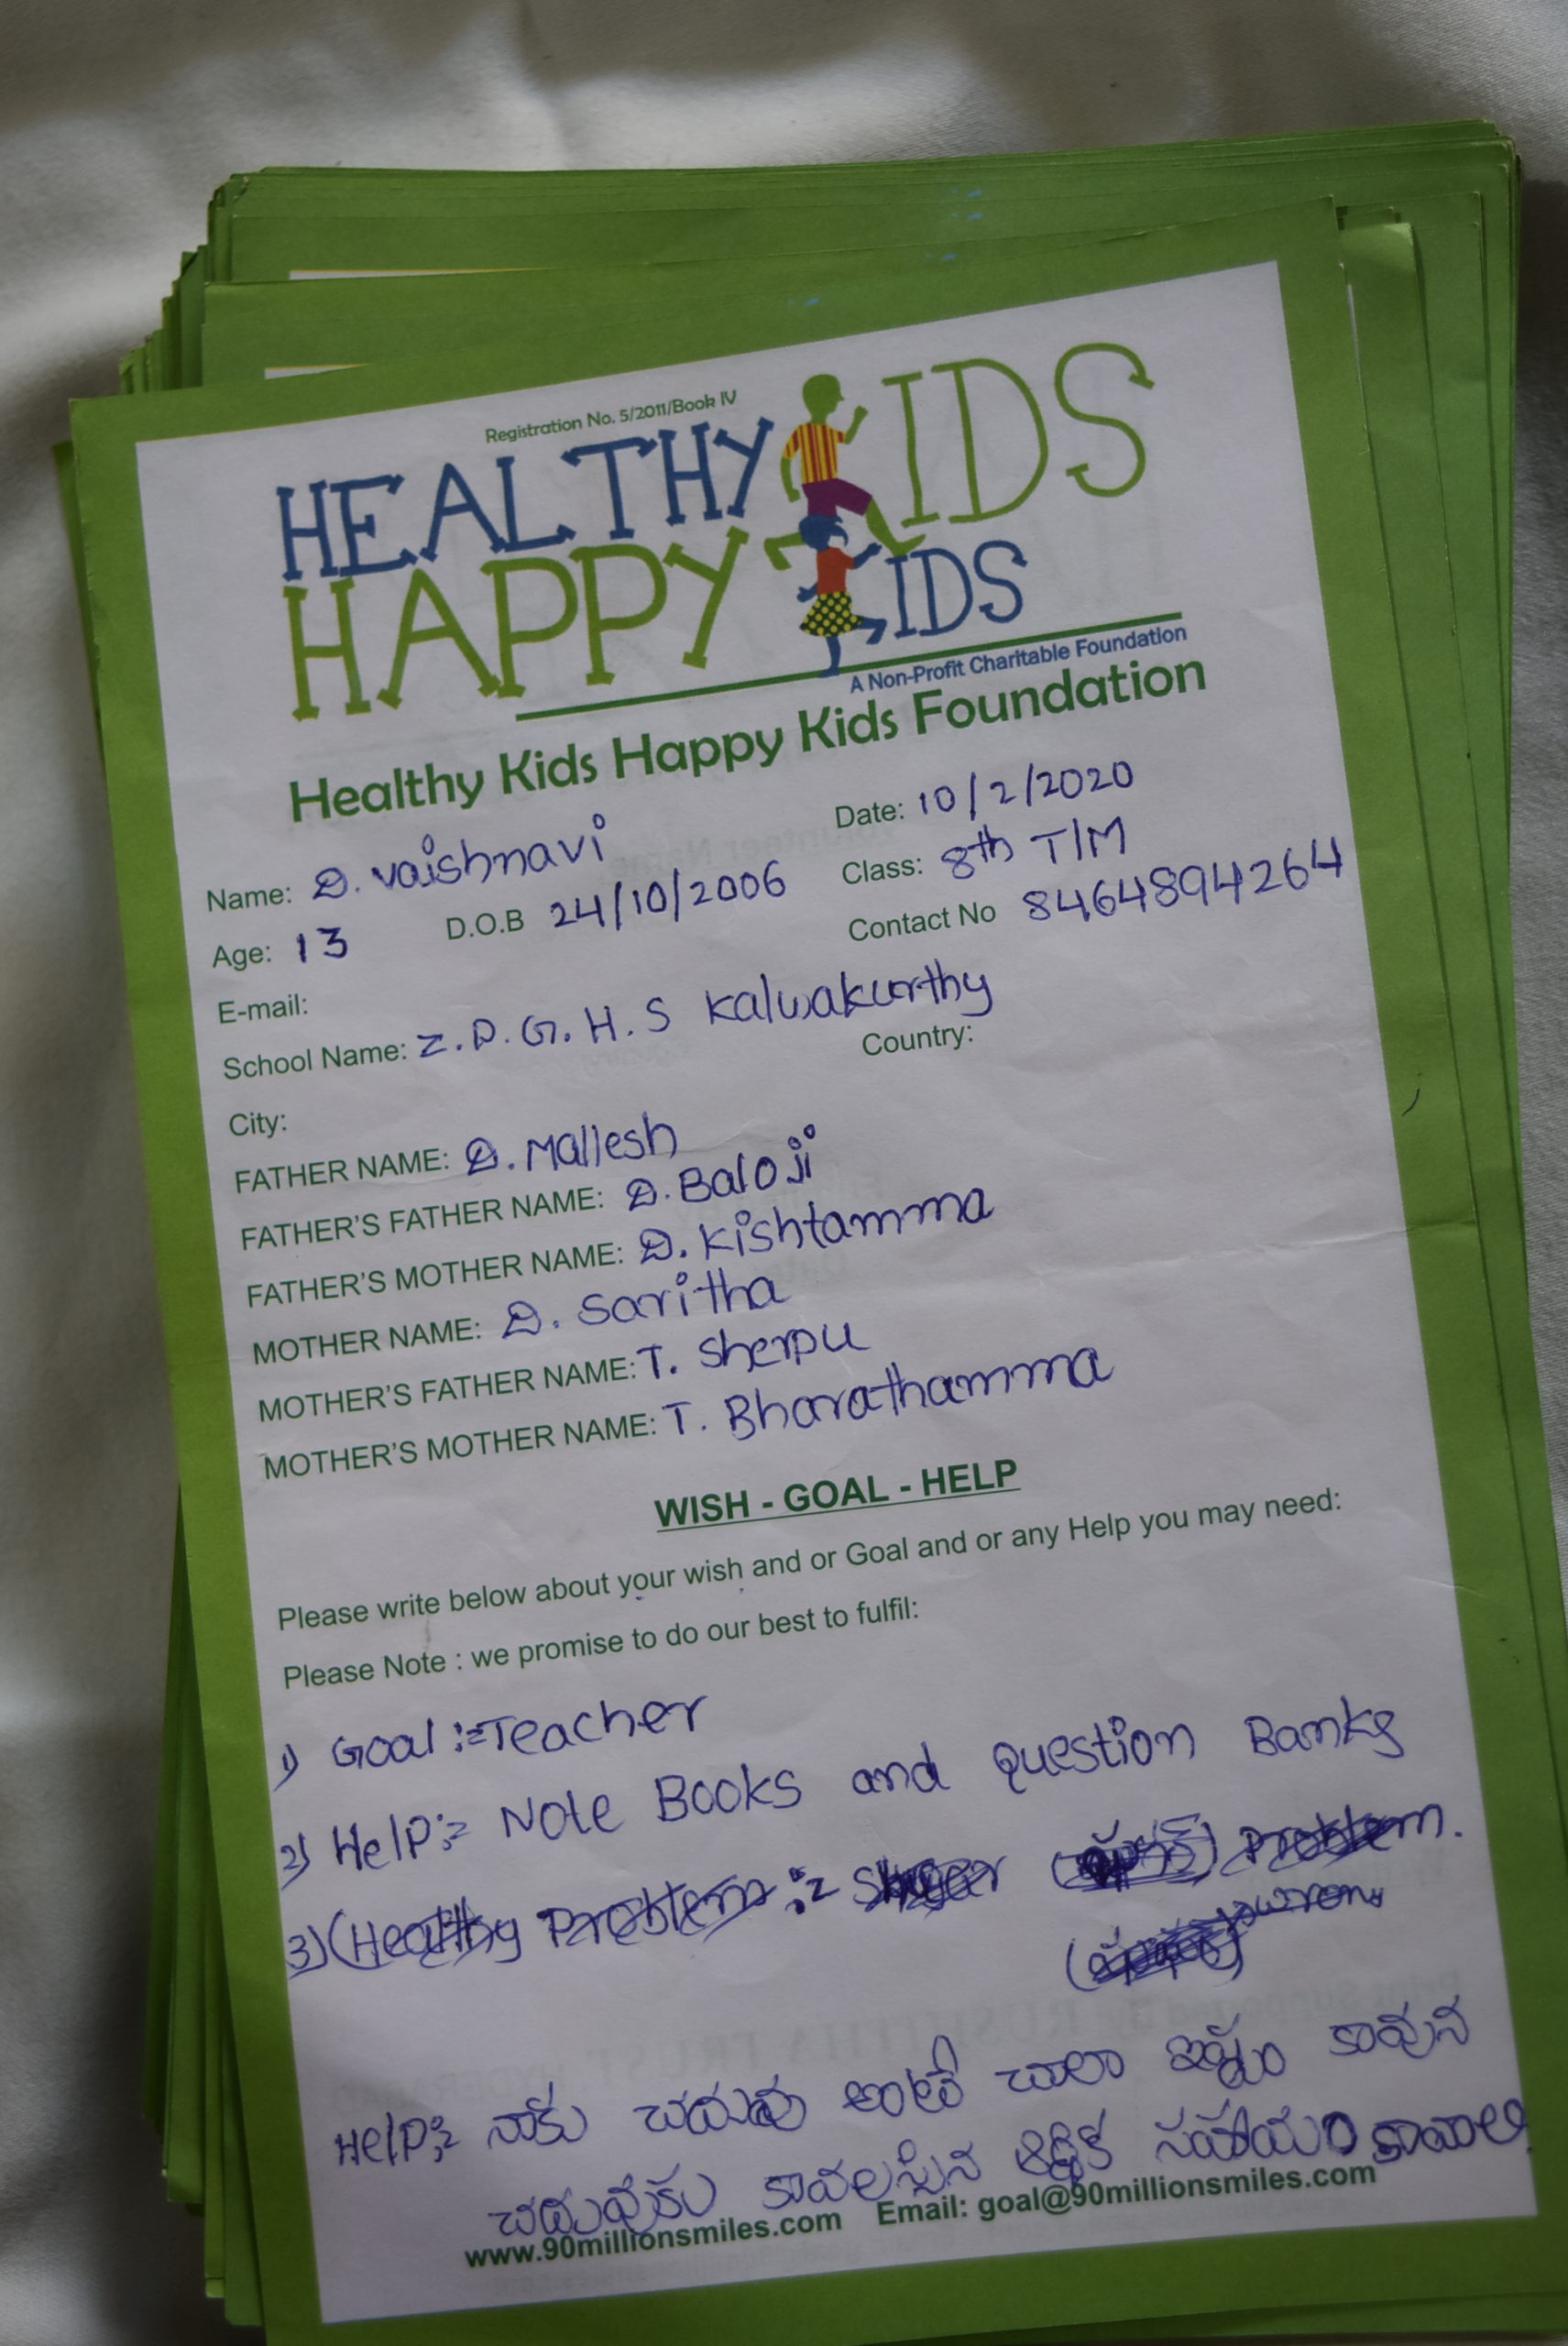 Registration No. 5/2011/Book IV
HEALTHY KIDS
HAPPY KIDS
A Non-Profit Charitable Foundation
Healthy Kids Happy Kids Foundation
Date: 10/2/2020
Name: D. vaishnavi
Class: 8th T/M
Age: 13 D.O.B 24/10/2006
Contact No 8464894264
E-mail:
School Name: Z.P.G.H.S Kalwakurthy
Country:
City:
FATHER NAME: D. Mallesh
FATHER'S FATHER NAME: D. Baloji
FATHER'S MOTHER NAME: D. Kishtamma
MOTHER NAME: D. Saritha
MOTHER'S FATHER NAME: T. Sherpu
MOTHER'S MOTHER NAME: T. Bharathamma
WISH - GOAL - HELP
Please write below about your wish and or Goal and or any Help you may need:
Please Note : we promise to do our best to fulfil:
1) Goal := Teacher
2) Help := Note Books and question Banks
3) (Healthy Problem := Sugar Problem.
wrong
Help := నాకు చదువు అంటే చాలా ఇష్టం కావున
చదువుకు కావలసిన ఆర్థిక సహాయం కావాలి
www.90millionsmiles.com Email: goal@90millionsmiles.com